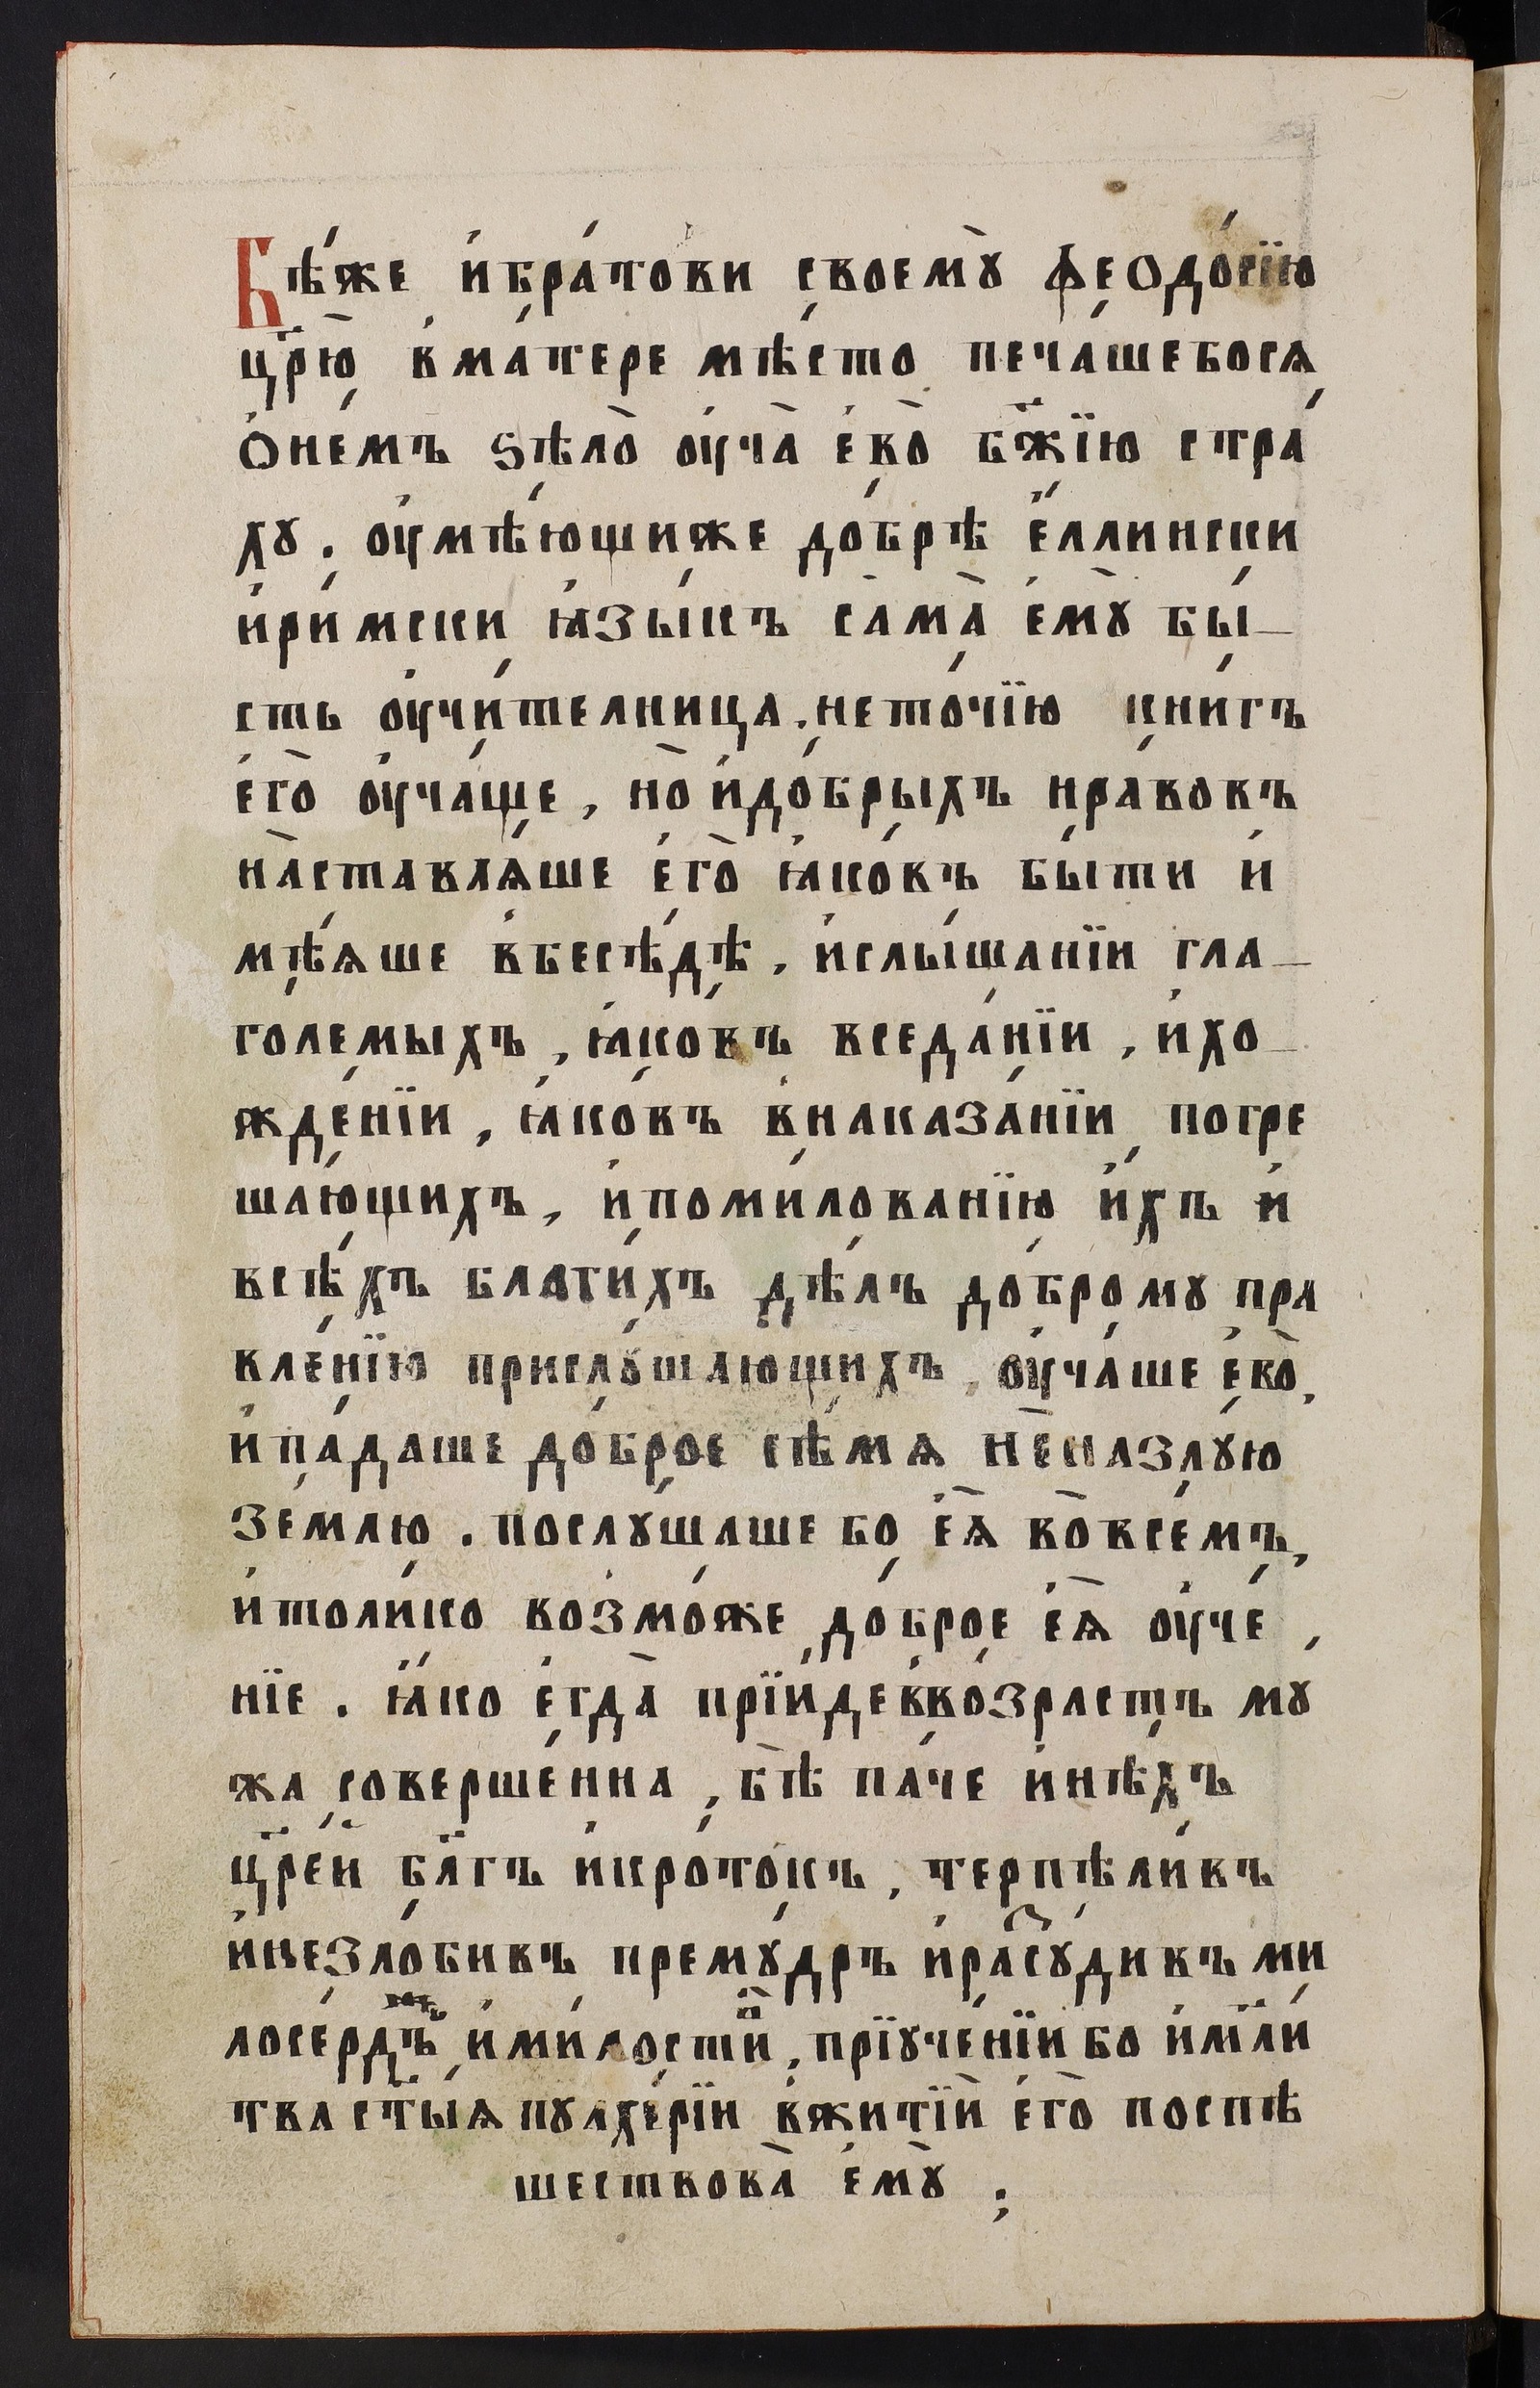 Бѣ́же и҆бра́тови своемꙋ̀ ѳеодо́сїю
цр҃ю̀ в҆ма́тере мѣ́сто печа́шебосѧ
ѻ҆не́мъ ѕѣлѡ̀ оу҆ча̀ е҆во̀ бж҃їю стра́
хꙋ. оу҆мѣ́ющиже до́брѣ е҆́ллински
и҆ри́мски ꙗ҆зы́къ сама̀ е҆мꙋ̀ бы́-
сть оу҆чи́телница. нето́чїю кни́гъ
е҆го̀ оу҆ча́ше, но̀ и҆до́брыхъ нра́вовъ
на̀ставлѧ́ше е҆го̀ ꙗ҆ко́въ бы́ти и҆
мѣ́ѧше в҆бесѣ́дѣ, и҆слы́шанїи гла-
големыхъ, ꙗ҆ко́въ вседа́нїи, и҆хо-
жде́нїи, ꙗ҆ко́въ в҆наказа́нїи погре
ша́ющихъ, и҆поми́лованїю и҆́хъ и҆
всѣ́хъ благи́хъ дѣ́лъ до́бромꙋ пра
вле́нїю прислꙋ́шающихъ, оу҆ча́ше е҆во̀,
и҆па́даше до́брое сѣ́мѧ нѐназлꙋ́ю
зе́млю. послꙋ́шаше бо е҆ѧ̀ во̀все́мъ,
и҆толи́ко возмо́же до́брое е҆ѧ̀ оу҆че́,
нїе. ꙗ҆́ко е҆гда̀ прїи́дев҆во́зрастъ мꙋ́
жа соверше́нна, бѣ̀ па́че и҆нѣ́хъ
цр҃е́й бл҃гъ и҆кро́токъ, терпѣли́въ
и҆незло́бивъ премꙋ́дръ и҆ра́сꙋдивъ ми
лосе́рдъ и҆ми́лостив, прїꙋче́нїи бо и҆мл҃и́
тва ст҃ы́ѧ пꙋлхе́рїи в҆житїѝ е҆го̀ поспѣ
шествова̀ е҆мꙋ̀ ;